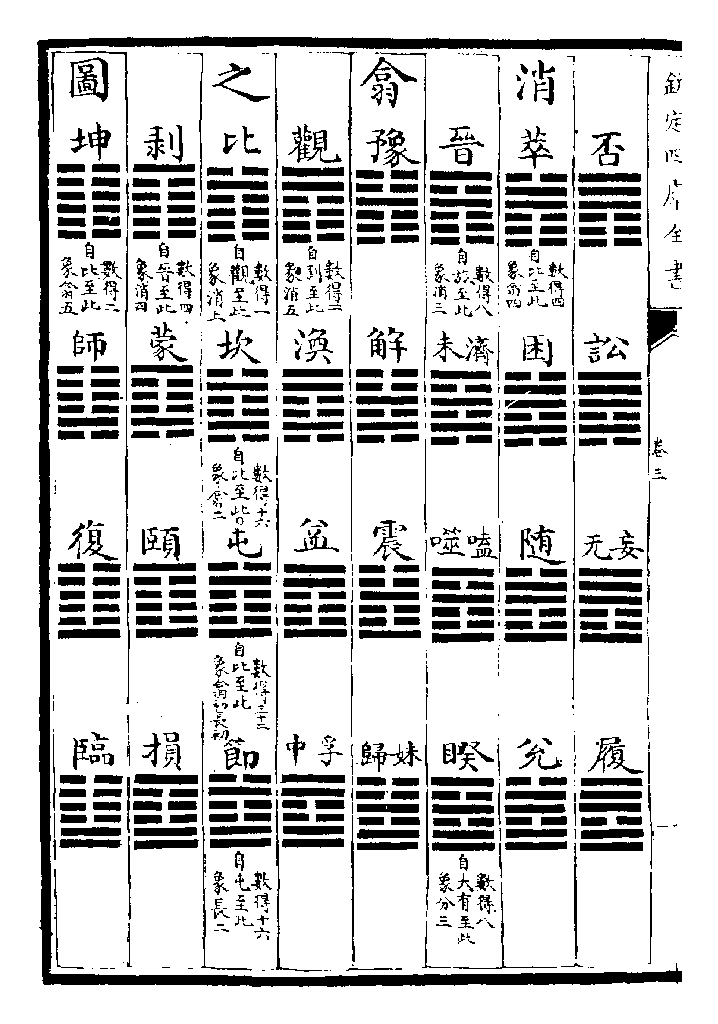 欽定四庫全書
卷三
否
訟
无妄
履
消
萃
數得四
自比至此
象翕四
困
随
兌
晉
數得八
自旅至此
象消三
未濟
噬嗑
睽
數得八
自大有至此
象分三
翕
豫
解
震
歸妹
觀
數得二
自到至此
象消五
渙
益
中孚
之
比
數得一
自觀至此
象消上
坎
數得十六
自比至此
象翕二
屯
數得三十二
自比至此
象翕初長初
節
數得十六
自屯至此
象長二
剥
數得四
自晉至此
象消四
蒙
頤
損
圖
坤
數得二
自比至此
象翕五
師
復
臨